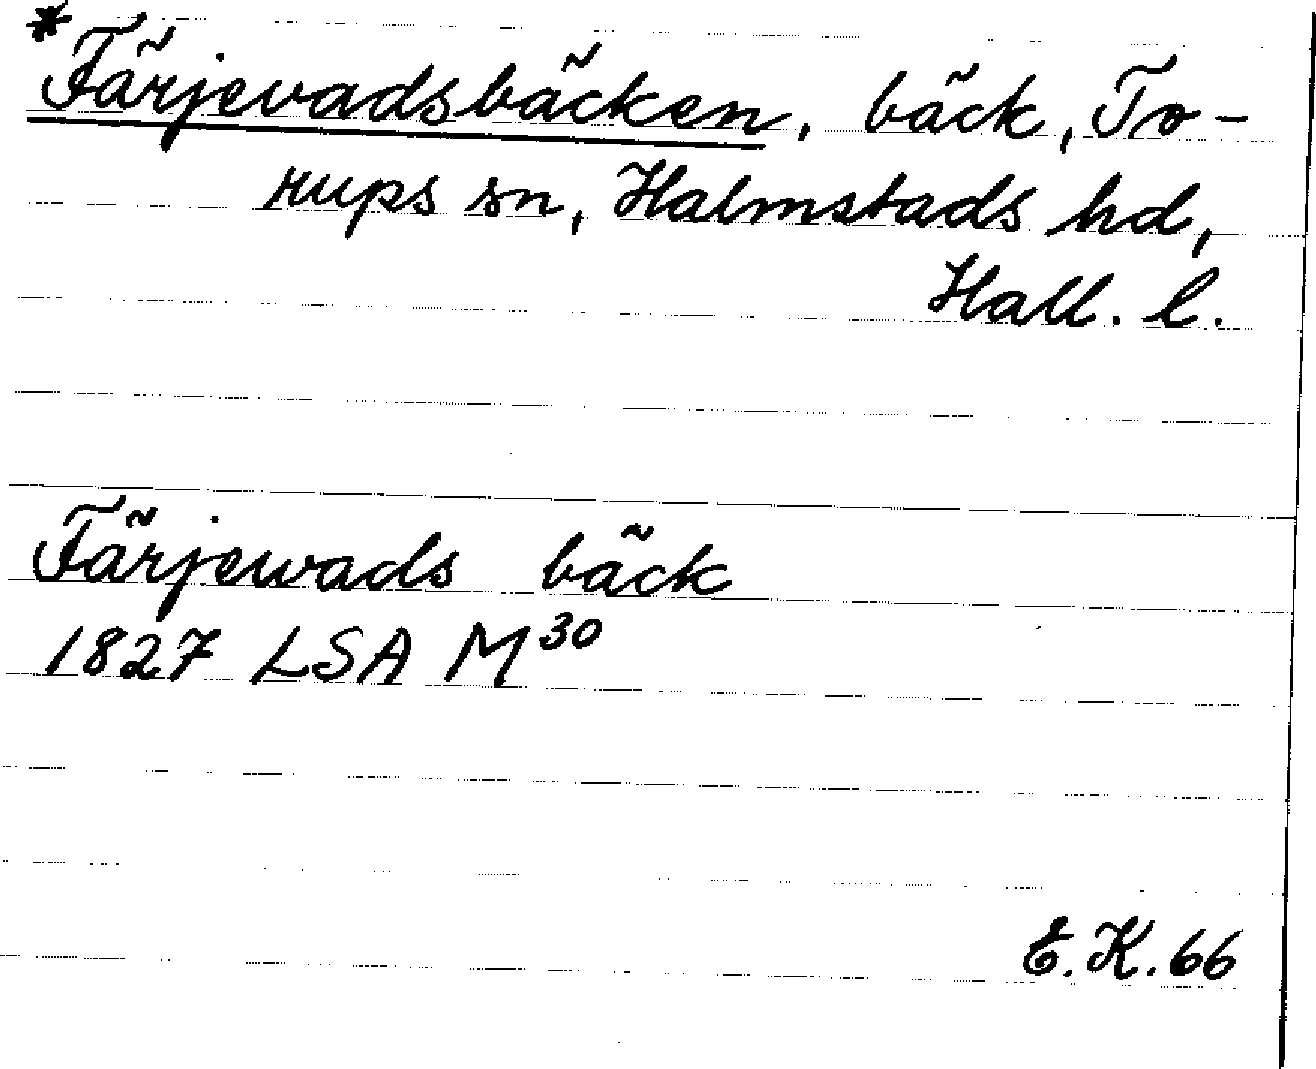 *Färjevadsbäcken, bäck, To-
rups sn, Halmstads hd,
Hall. l.
Färjewads bäck
1827 LSA M³⁰
E.K. 66